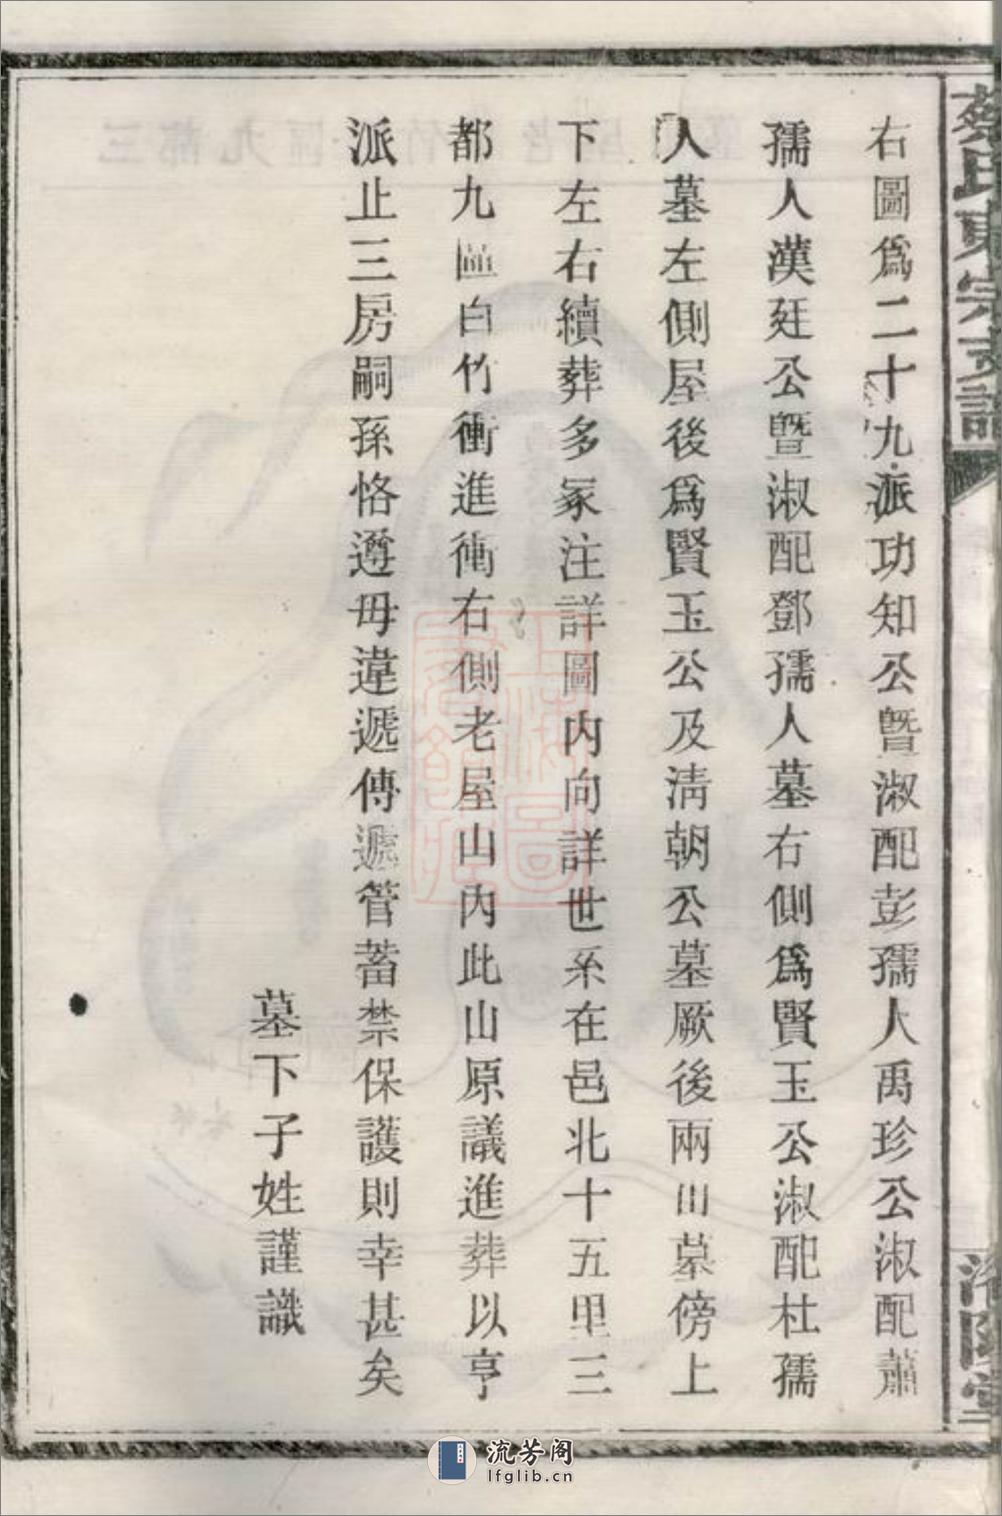 蔡氏東宗支譜
右圖爲二十九派功知公暨淑配彭孺人禹珍公淑配蕭
孺人漢廷公暨淑配鄧孺人墓右側爲賢玉公淑配杜孺
人墓左側屋後爲賢玉公及淸朝公墓厥後兩川墓傍上
下左右續葬多冢注詳圖內向詳世系在邑北十五里三
都九區白竹衝進衝右側老屋山內此山原議進葬以亨
派止三房嗣孫恪遵毋違遞傳遞管蓄禁保護則幸甚矣
墓下子姓謹識
洛陽堂
上海圖書館藏
流芳阁
lfglib.cn